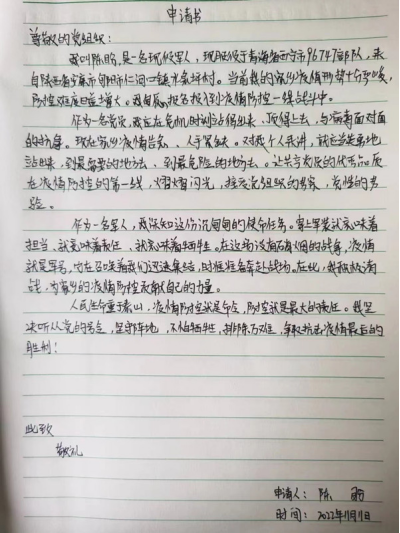 申请书
尊敬的党组织:
我叫陈晒,是一名现役军人,现服役于青海省西宁市96747部队,来
自陕西省安康市旬阳市仁河口镇水泉坪村。当前我的家乡疫情形势十分严峻,
防控难度日益增大。我自愿报名投入到疫情防控一线战斗中。
作为一名党员,就应在危机时刻站得出来,顶得上去,与病毒面对面
的抗争。现在家乡疫情告急、人手紧缺。对我个人来讲,就应当英勇地
站出来,到最需要的地方去、到最危险的地方去。让共产党员的优秀品质
在疫情防控的第一线,熠熠闪光,接受党组织的考察,党性的考
验。
作为一名军人,我深知这份沉甸甸的使命任务。穿上军装就意味着
担当,就意味着责任,就意味着牺牲。在这场没有硝烟的战争,疫情
就是军号,它在召唤着我们迅速集结,时刻准备奔赴战场。在此,我积极请
战,为家乡的疫情防控贡献自己的力量。
人民生命重于泰山,疫情防控就是命令,防控就是最大的责任。我坚
决听从党的号令,坚守阵地,不怕牺牲,排除万难,争取抗击疫情最后的
胜利!
此致
敬礼
申请人:陈 晒
时间:2022年11月11日